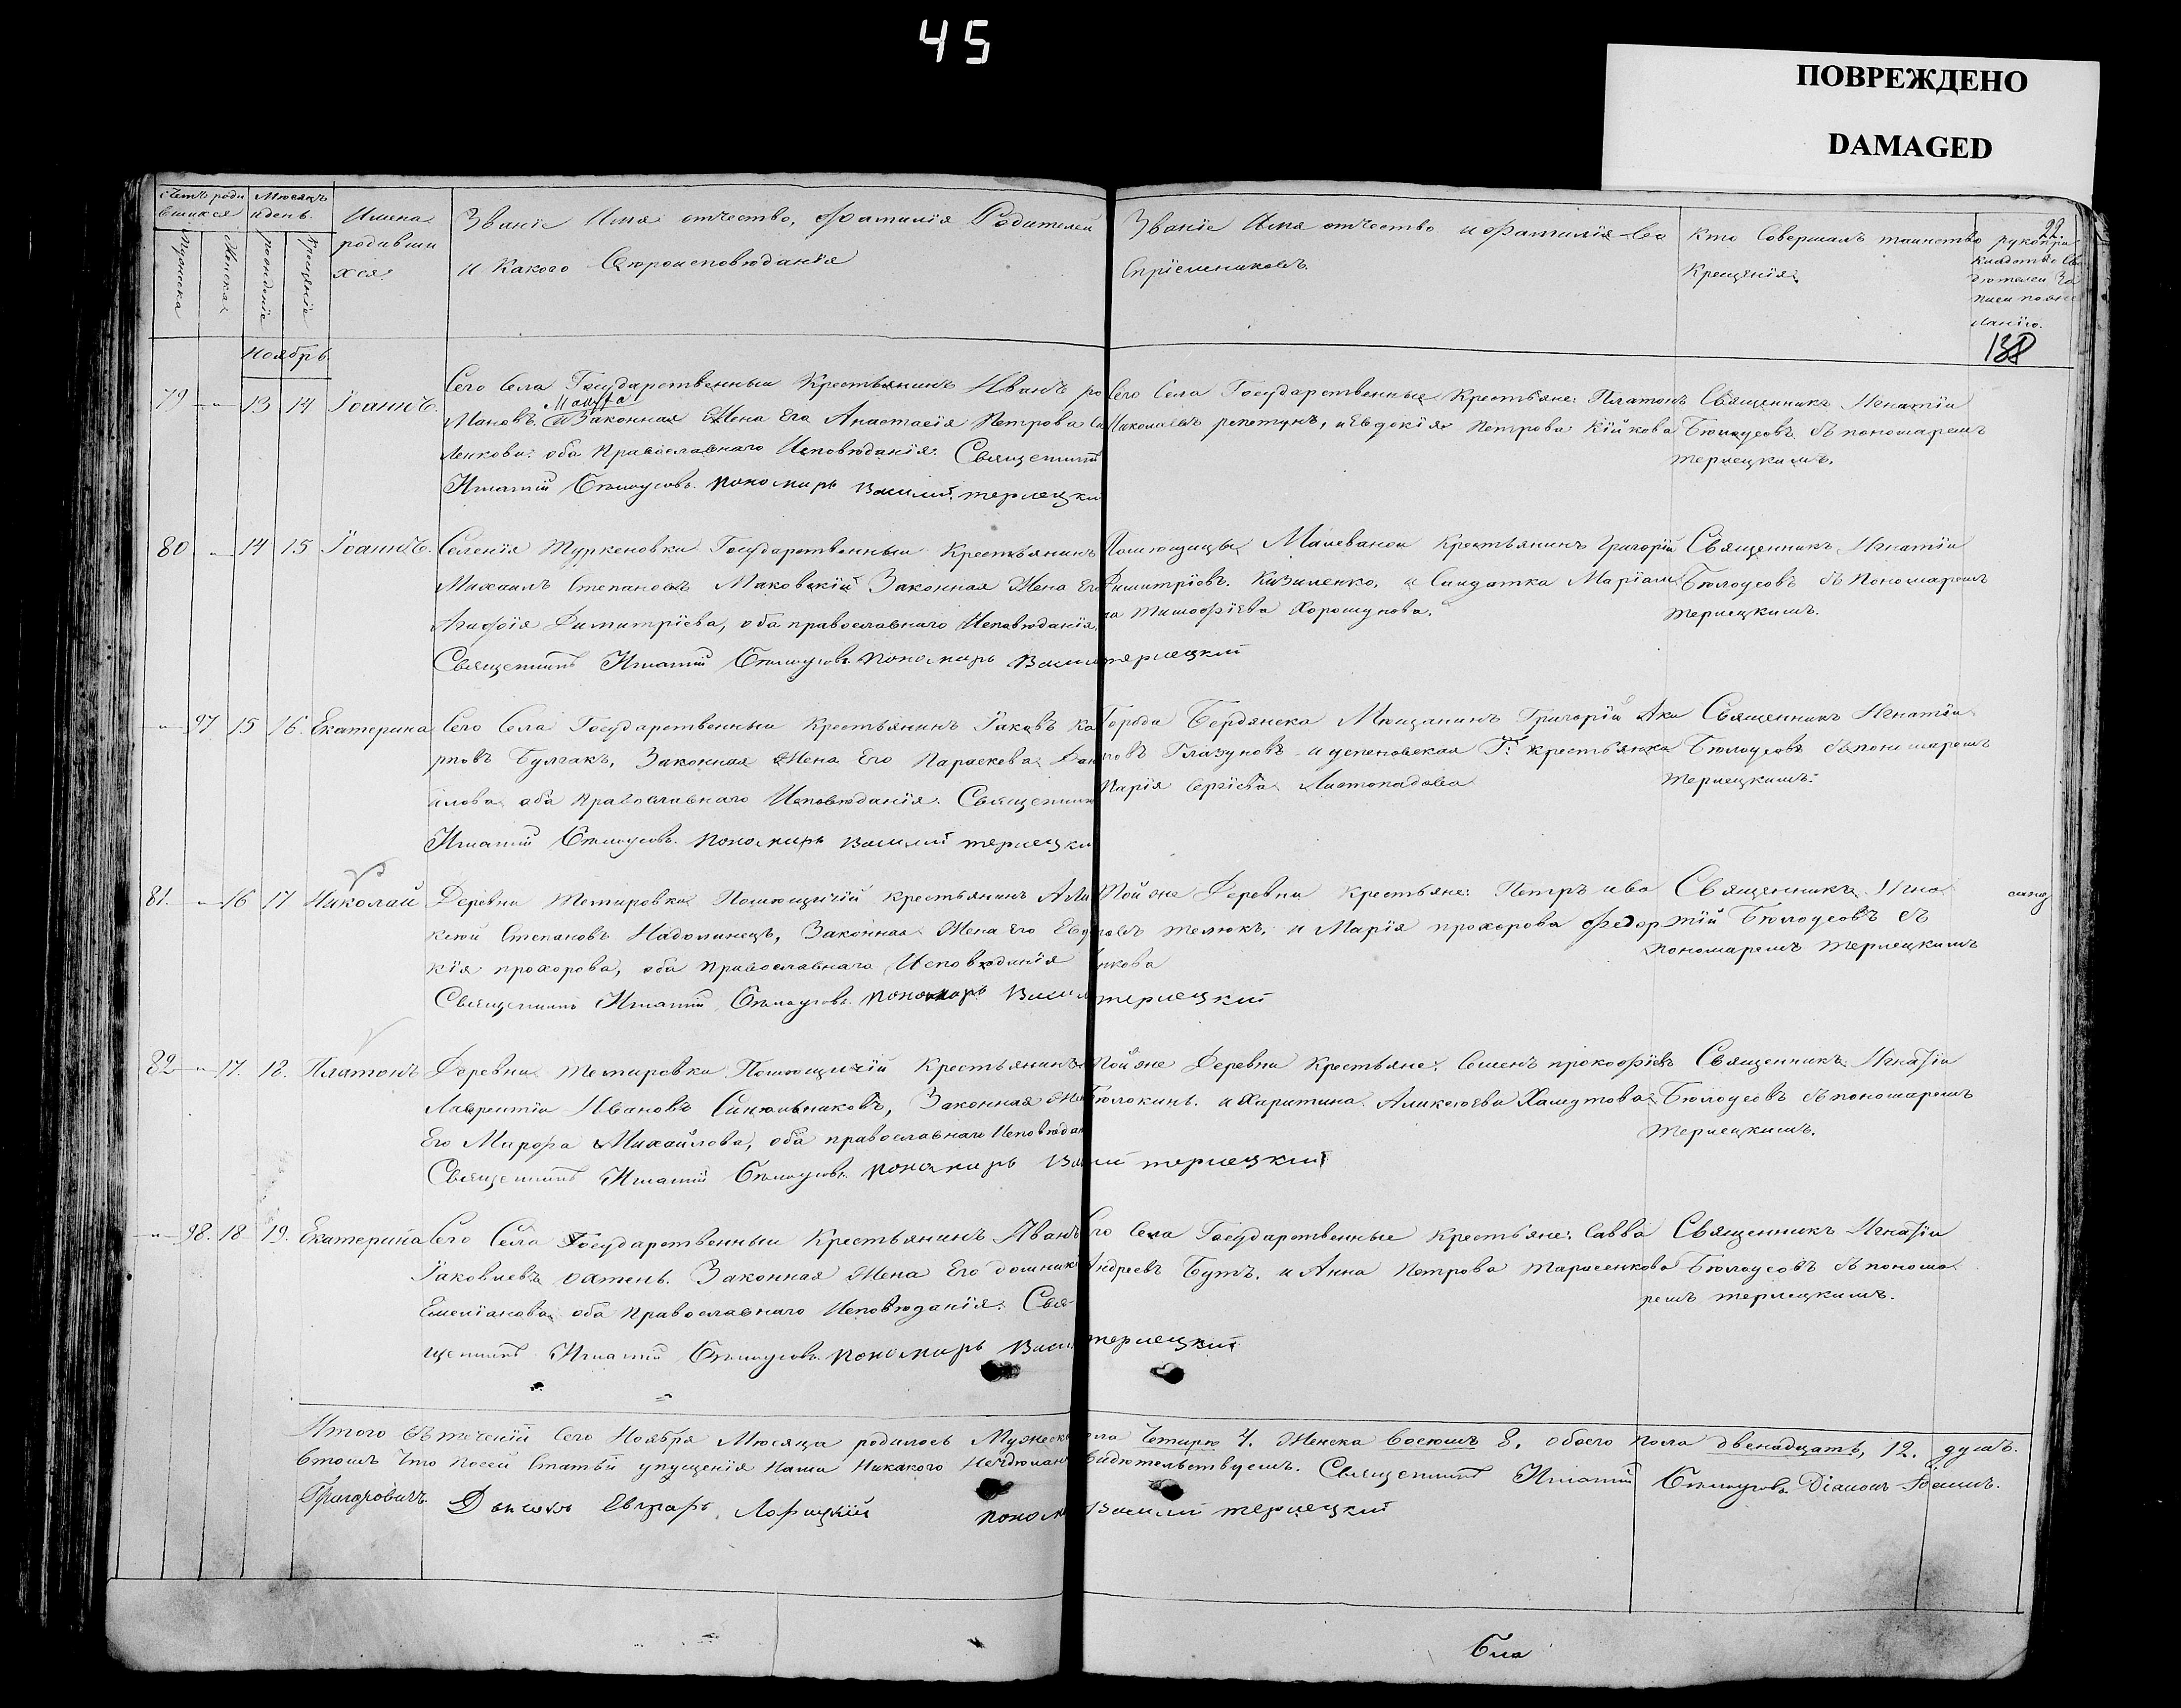 45
ПОВРЕЖДЕНО
DAMAGED
22.
138
Счетъ роди
вшихся
Мужеска
Женска
Мѣсяцъ
и день.
рожденіе
Крещеніе
Имена
родивши
хся
Званіе Имя отчество, фамилія Родителей
и Какого Вѣроисповѣданія
Званіе Имя отчество и фамилія Во
спріемниковъ.
Кто Совершалъ таинство
Крещенія
рукопри
кладство Сви
дѣтелей За
писи по же
ланію.
Ноябрь
79 " 13 14 Іоаннъ.
Сего Села Государственный Крестьянинъ Иванъ ро
мановъ Законная Жена Его Анастасія Петрова
оба Православнаго Исповѣданія. Священникъ
Игнатій Бѣлоусовъ. Пономарь Василій терлецкій
Сего Села Государственные Крестьяне: Платонъ
Николаевъ репетунъ, и Евдокія Петрова Кійкова
Священникъ Игнатій
Бѣлоусовъ съ пономаремъ
терлецкимъ.
80 " 14 15 Іоаннъ.
Селенія Туркеновки Государственный Крестьянинъ
Михаилъ Степановъ Маковскій Законная Жена Его
Агафія Димитріева, оба православнаго Исповѣданія.
Священникъ Игнатій Бѣлоусовъ. Пономарь Василій терлецкій
Помѣщицы Малеваной крестьянинъ Григорій
Димитріевъ. Кизиленко, и Солдатка Маріам
на Тимофѣева Хорошунова.
Священникъ Игнатій
Бѣлоусовъ съ Пономаремъ
терлецкимъ.
" 97 15 16. Екатерина
Сего Села Государственный Крестьянинъ Іаковъ Ка
рповъ Булгакъ, Законная Жена Его Параскева Дан
илова оба Православнаго Исповѣданія. Священникъ
Игнатій Бѣлоусовъ. Пономарь Василій терлецкій
Города Бердянска Мѣщанинъ Григорій Аки
мовъ Глазуновъ и успеновская Г: крестьянка
Марія Сергіева Листопадова
Священникъ Игнатій
Бѣлоусовъ съ пономаремъ
терлецкимъ:
81. " 16 17 Николай
Деревни Темировки Помѣщичій крестьянинъ Але
ксѣй Степановъ Надолинецъ, Законная Жена Его Евдо
кія прохорова, оба Православнаго Исповѣданія
Священникъ Игнатій Бѣлоусовъ. Пономарь Василій терлецкій
Той же Деревни Крестьяне: Петръ ива
новъ телюкъ, и Марія прохорова федор
енкова
Священникъ Игна
тій Бѣлоусовъ съ
пономаремъ терлецкимъ
82 " 17. 18. Платонъ
Деревни Темировки Помѣщичій Крестьянинъ
Лаврентій Ивановъ Синѣльниковъ, Законная Жена
Его Мирофа Михайлова, оба православнаго Исповѣдан
Священникъ Игнатій Бѣлоусовъ. пономарь Василій терлецкій
Той же Деревни Крестьяне: Семенъ прокофіевъ
Бѣлокинь. и Харитина Алексѣева Хамутова
Священникъ Игнатій
Бѣлоусовъ съ пономаремъ
терлецкимъ.
" 98. 18 19. Екатерина
Сего Села Государственный Крестьянинъ Иванъ
Іаковлевъ Законная Жена Его домникія
Емеліанова оба Православнаго Исповѣданія. Свя
щенникъ Игнатій Бѣлоусовъ. пономарь Василій терлецкій
Сего Села Государственные Крестьяне: Савва
Андреевъ Бутъ. и Анна Петрова Тарасенкова
Священникъ Игнатій
Бѣлоусовъ съ понома
ремъ терлецкимъ.
Итого Въ теченіи Сего Ноября Мѣсяца родилось Мужеска пола Четыре 4. Женска восемь 8. обоего пола двенадцать, 12. душъ.
Втомъ Что посей Статьи упущенія Нами Никакого Несдѣлано Свидѣтельствуемъ. Священникъ Игнатій Бѣлоусовъ Діаконъ Іоаннъ.
Григоровичъ. Дьячокъ Евграфъ Пономарь Василій терлецкій